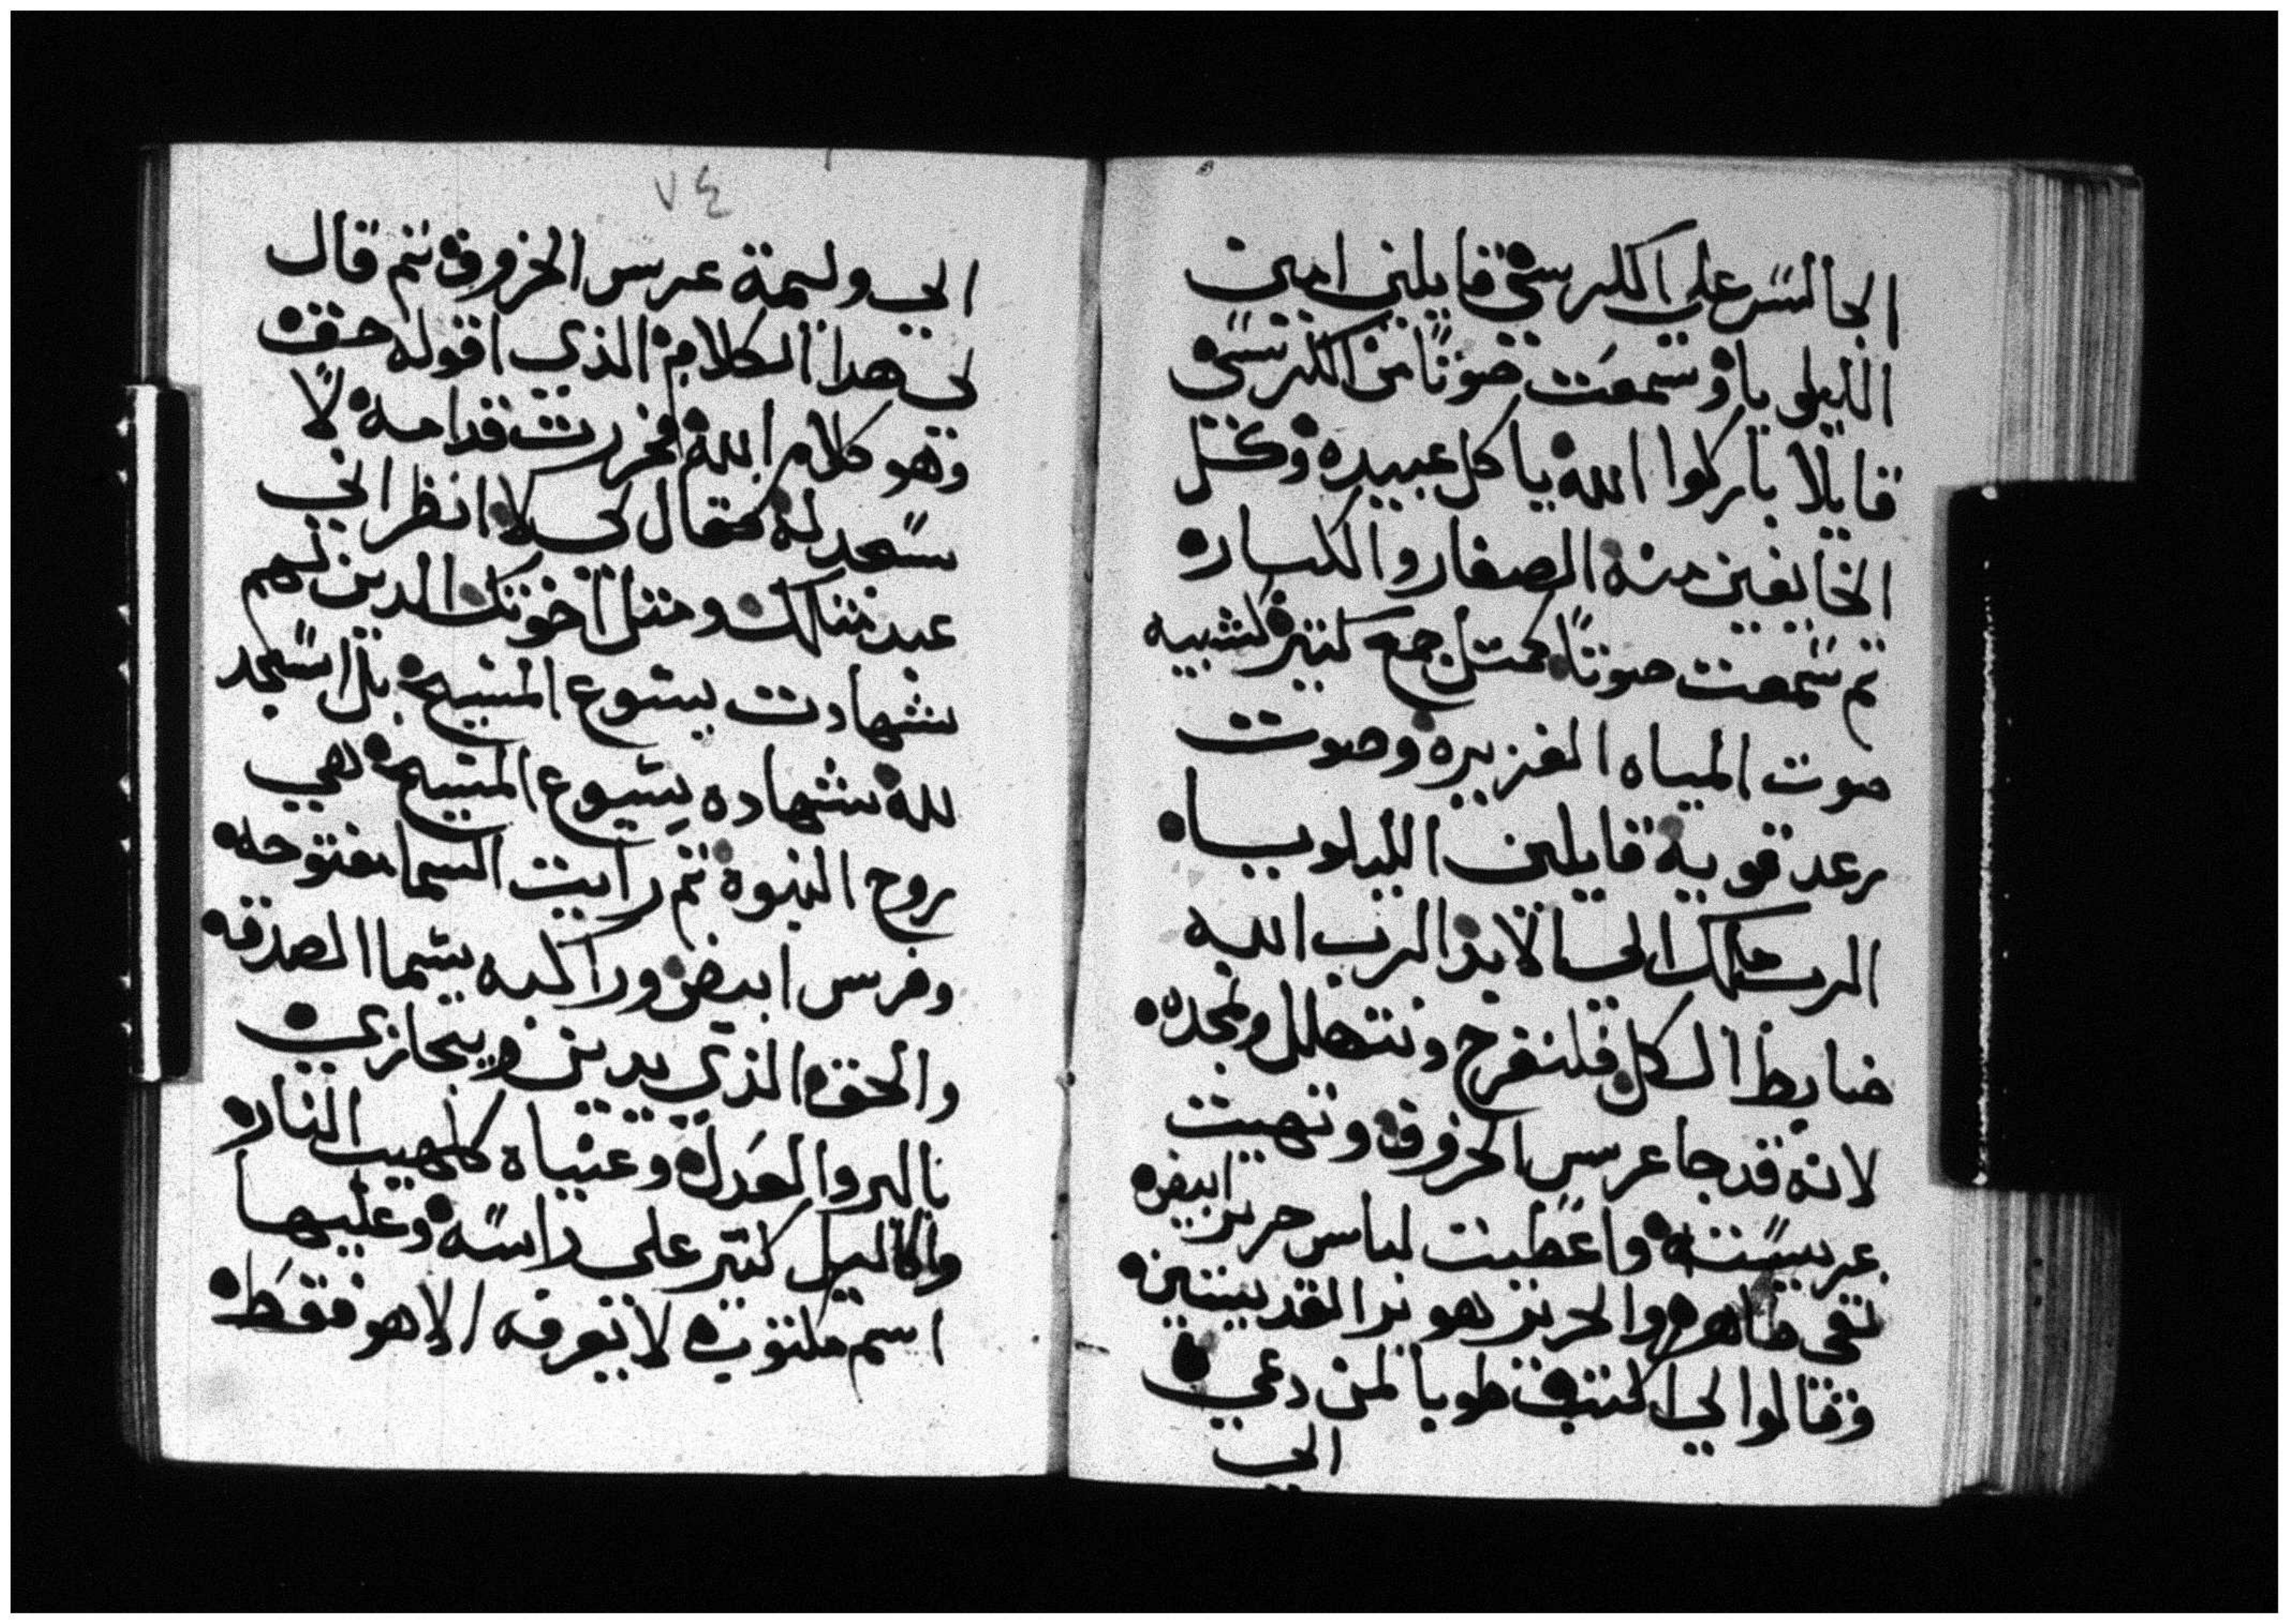 الجالس علي الكرسي قايلين امين
الليلويا وسمعت صوتا من الكرسي
قايلا باركوا الله يا كل عبيده وكل
الخايفين منه الصغار والكبار
تم سمعت صوتا كمتل جمع كتير كشبيه
صوت المياه الغزيره وصوت
رعد قوية قايلين الليلويا
الرب ملك الي الابد الرب الله
ضابط الكل فلنفرح ونتهلل ونمجده
لانه قد جا عرس الخروف وتهيت
عريسته واعطيت لباس حرير ابيض
نقي طاهر والحرير هو بر القديسين
وقالوا لي اكتب طوبا لمن دعي
الي
٧٤
الي وليمة عرس الخروف تم قال
لي هدا الكلام الذي اقوله حق
وهو كلام الله فخررت قدامه لا
سجد له فقال لي لا انظر اني
عبد متلك ومتل اخوتك الدين لهم
شهادت يسوع المسيح بل اسجد
لله شهاده يسوع المسيح هي
روح النبوة تم رايت السما مفتوحه
وفرس ابيض وراكبه يسما الصدق
والحق الذي يدين ويجازي
بالبر والعدل وعنياه كلهيب النار
واكاليل كتير علي راسه وعليها
اسم مكتوب لا يعرفه الا هو فقط